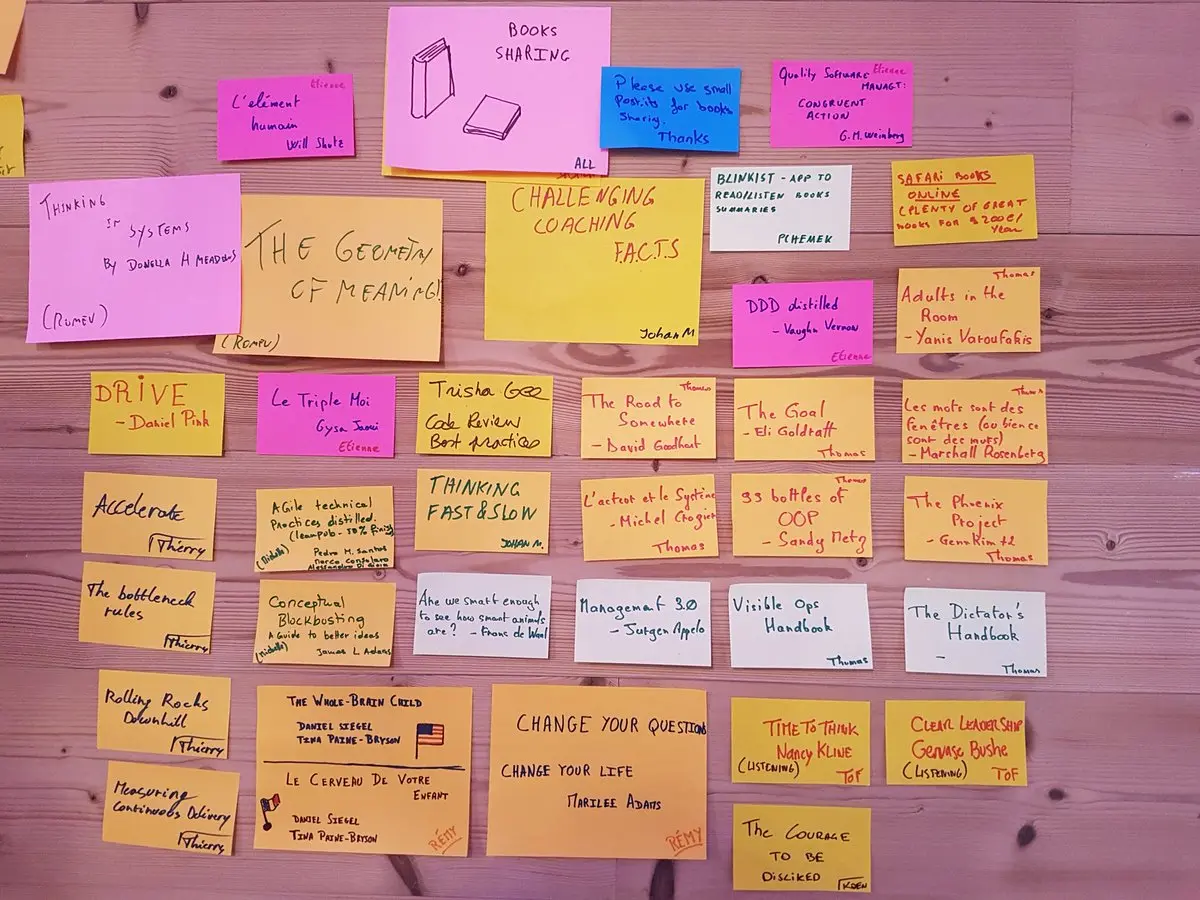 BOOKS
SHARING
ALL
L'elément
humain
Will Shutz
Etienne
Please use small
Post-its for books
Sharing.
Thanks
Quality Software
MANAGT:
CONGRUENT
ACTION
G.M. Weinberg
Etienne
THINKING
IN SYSTEMS
BY DONELLA H MEADOWS
(ROMEU)
THE GEOMETRY
OF MEANING!
(ROMEU)
CHALLENGING
COACHING
F.A.C.T.S
Johan M
BLINKIST - APP TO
READ/LISTEN BOOKS
SUMMARIES
PCHEMEK
SAFARI BOOKS
ONLINE
(PLENTY OF GREAT
BOOKS FOR $200€/
YEAR
DDD distilled
- Vaughn Vernon
Etienne
Thomas
Adults in the
Room
- Yanis Varoufakis
DRIVE
- Daniel Pink
Le Triple Moi
Gysa Jaoui
Etienne
Trisha Gee
Code Review
Best practices
Thomas
The Road to
Somewhere
- David Goodhart
The Goal
- Eli Goldratt
Thomas
Thomas
Les mots sont des
fenêtres (ou bien ce
sont des murs)
- Marshall Rosenberg
Accelerate
Thierry
Agile technical
Practices distilled.
(leanpub - 50% finish)
(Nichola)
Pedro M. Santos
Marco Consolaro
Alessandro Di Gioia
THINKING
FAST & SLOW
JOHAN M.
L'acteur et le Système
- Michel Crozier
Thomas
Thomas
99 bottles of
OOP
- Sandy Metz
The Phoenix
Project
- Gene Kim +2
Thomas
The bottleneck
rules
Thierry
Conceptual
Blockbusting
A Guide to better ideas
(Nichola)
James L Adams
Are we smart enough
to see how smart animals
are? - Franc de Waal
Management 3.0
- Jurgen Appelo
Visible Ops
Handbook
Thomas
The Dictator's
Handbook
-
Thomas
Rolling Rocks
Downhill
Thierry
THE WHOLE-BRAIN CHILD
DANIEL SIEGEL
TINA PAINE-BRYSON
LE CERVEAU DE VOTRE
ENFANT
DANIEL SIEGEL
TINA PAINE-BRYSON
RÉMY
CHANGE YOUR QUESTIONS
CHANGE YOUR LIFE
MARILEE ADAMS
RÉMY
TIME TO THINK
Nancy KLINE
(LISTENING)
TOF
CLEAR LEADERSHIP
Gervase Bushe
(LISTENING)
TOF
Measuring
Continuous Delivery
Thierry
The COURAGE
TO BE
DISLIKED
KOEN